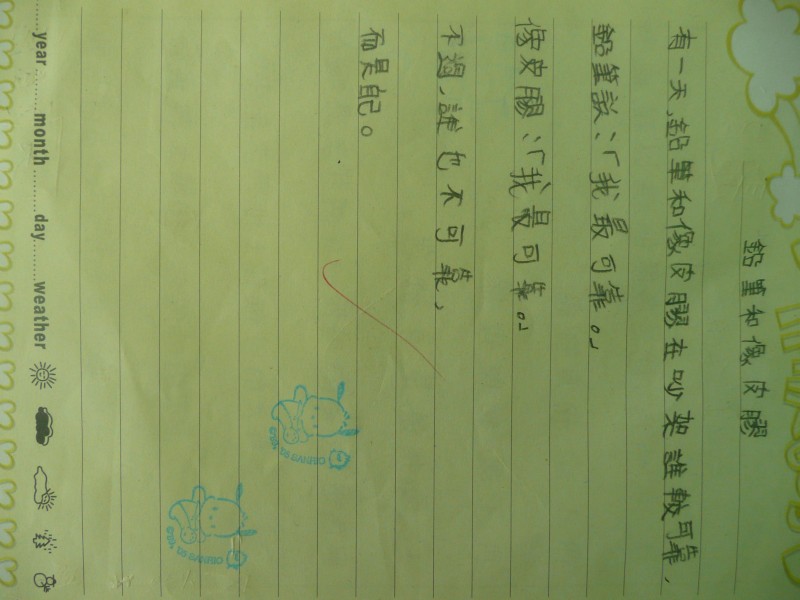 鉛筆和像皮膠
有一天,鉛筆和像皮膠在吵架誰較可靠,
鉛筆說:「我最可靠。」
像皮膠:「我最可靠。」
不過,誰也不可靠,
而是自己。
year month day weather